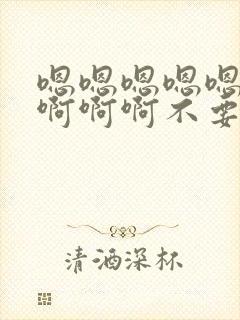 嗯嗯嗯嗯嗯
啊啊啊不要
清酒深杯